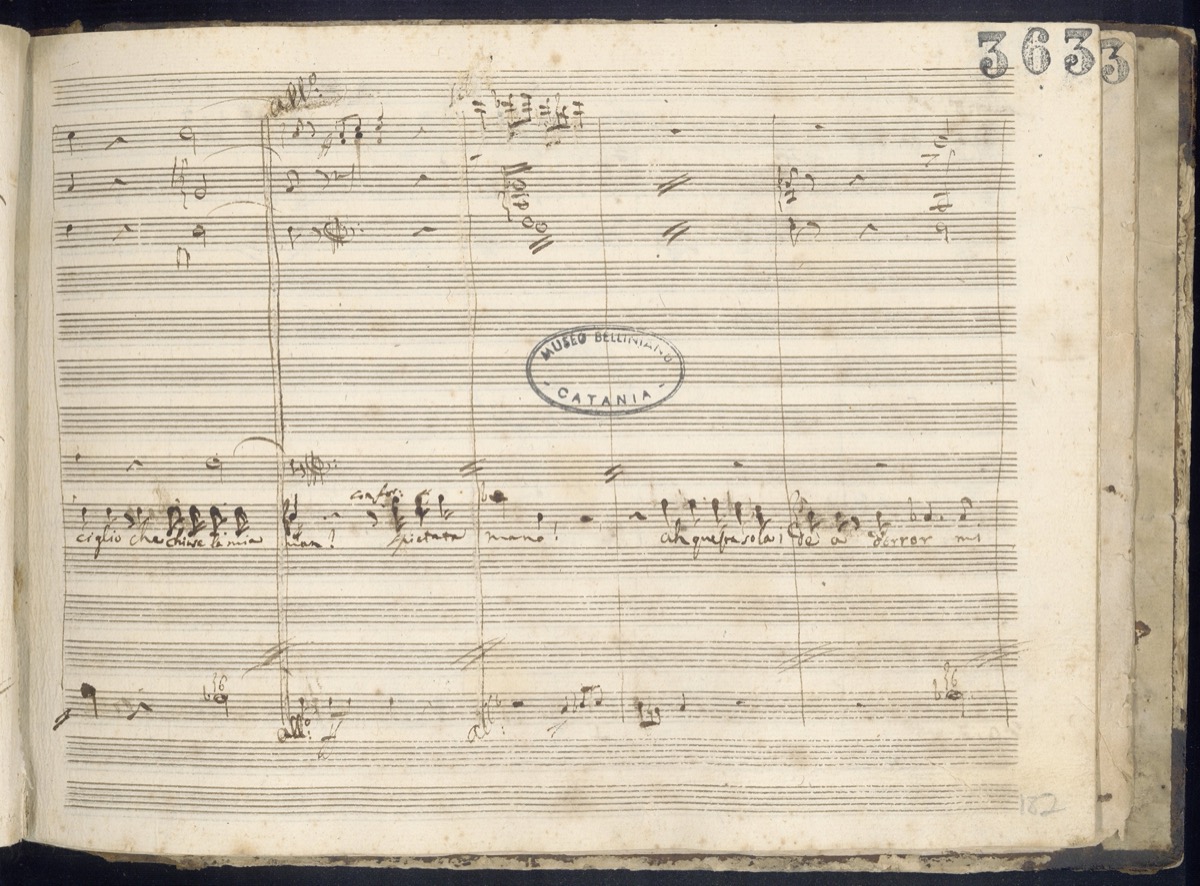 3633
all.º
MUSEO BELLINIANO
CATANIA
con for:
ciglio che chiuse la mia man! spietata mano! ah questa sola idea d'orror mi
all.º
all.º
182